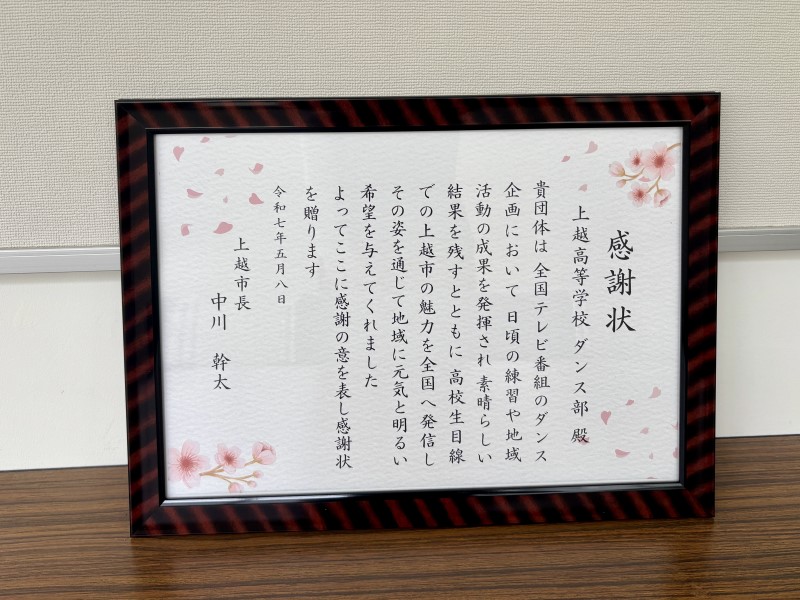 感謝状
上越高等学校 ダンス部 殿
貴団体は 全国テレビ番組のダンス
企画において 日頃の練習や地域
活動の成果を発揮され 素晴らしい
結果を残すとともに 高校生目線
での上越市の魅力を全国へ発信し
その姿を通じて地域に元気と明るい
希望を与えてくれました
よってここに感謝の意を表し感謝状
を贈ります
令和七年五月八日
上越市長
中川 幹太